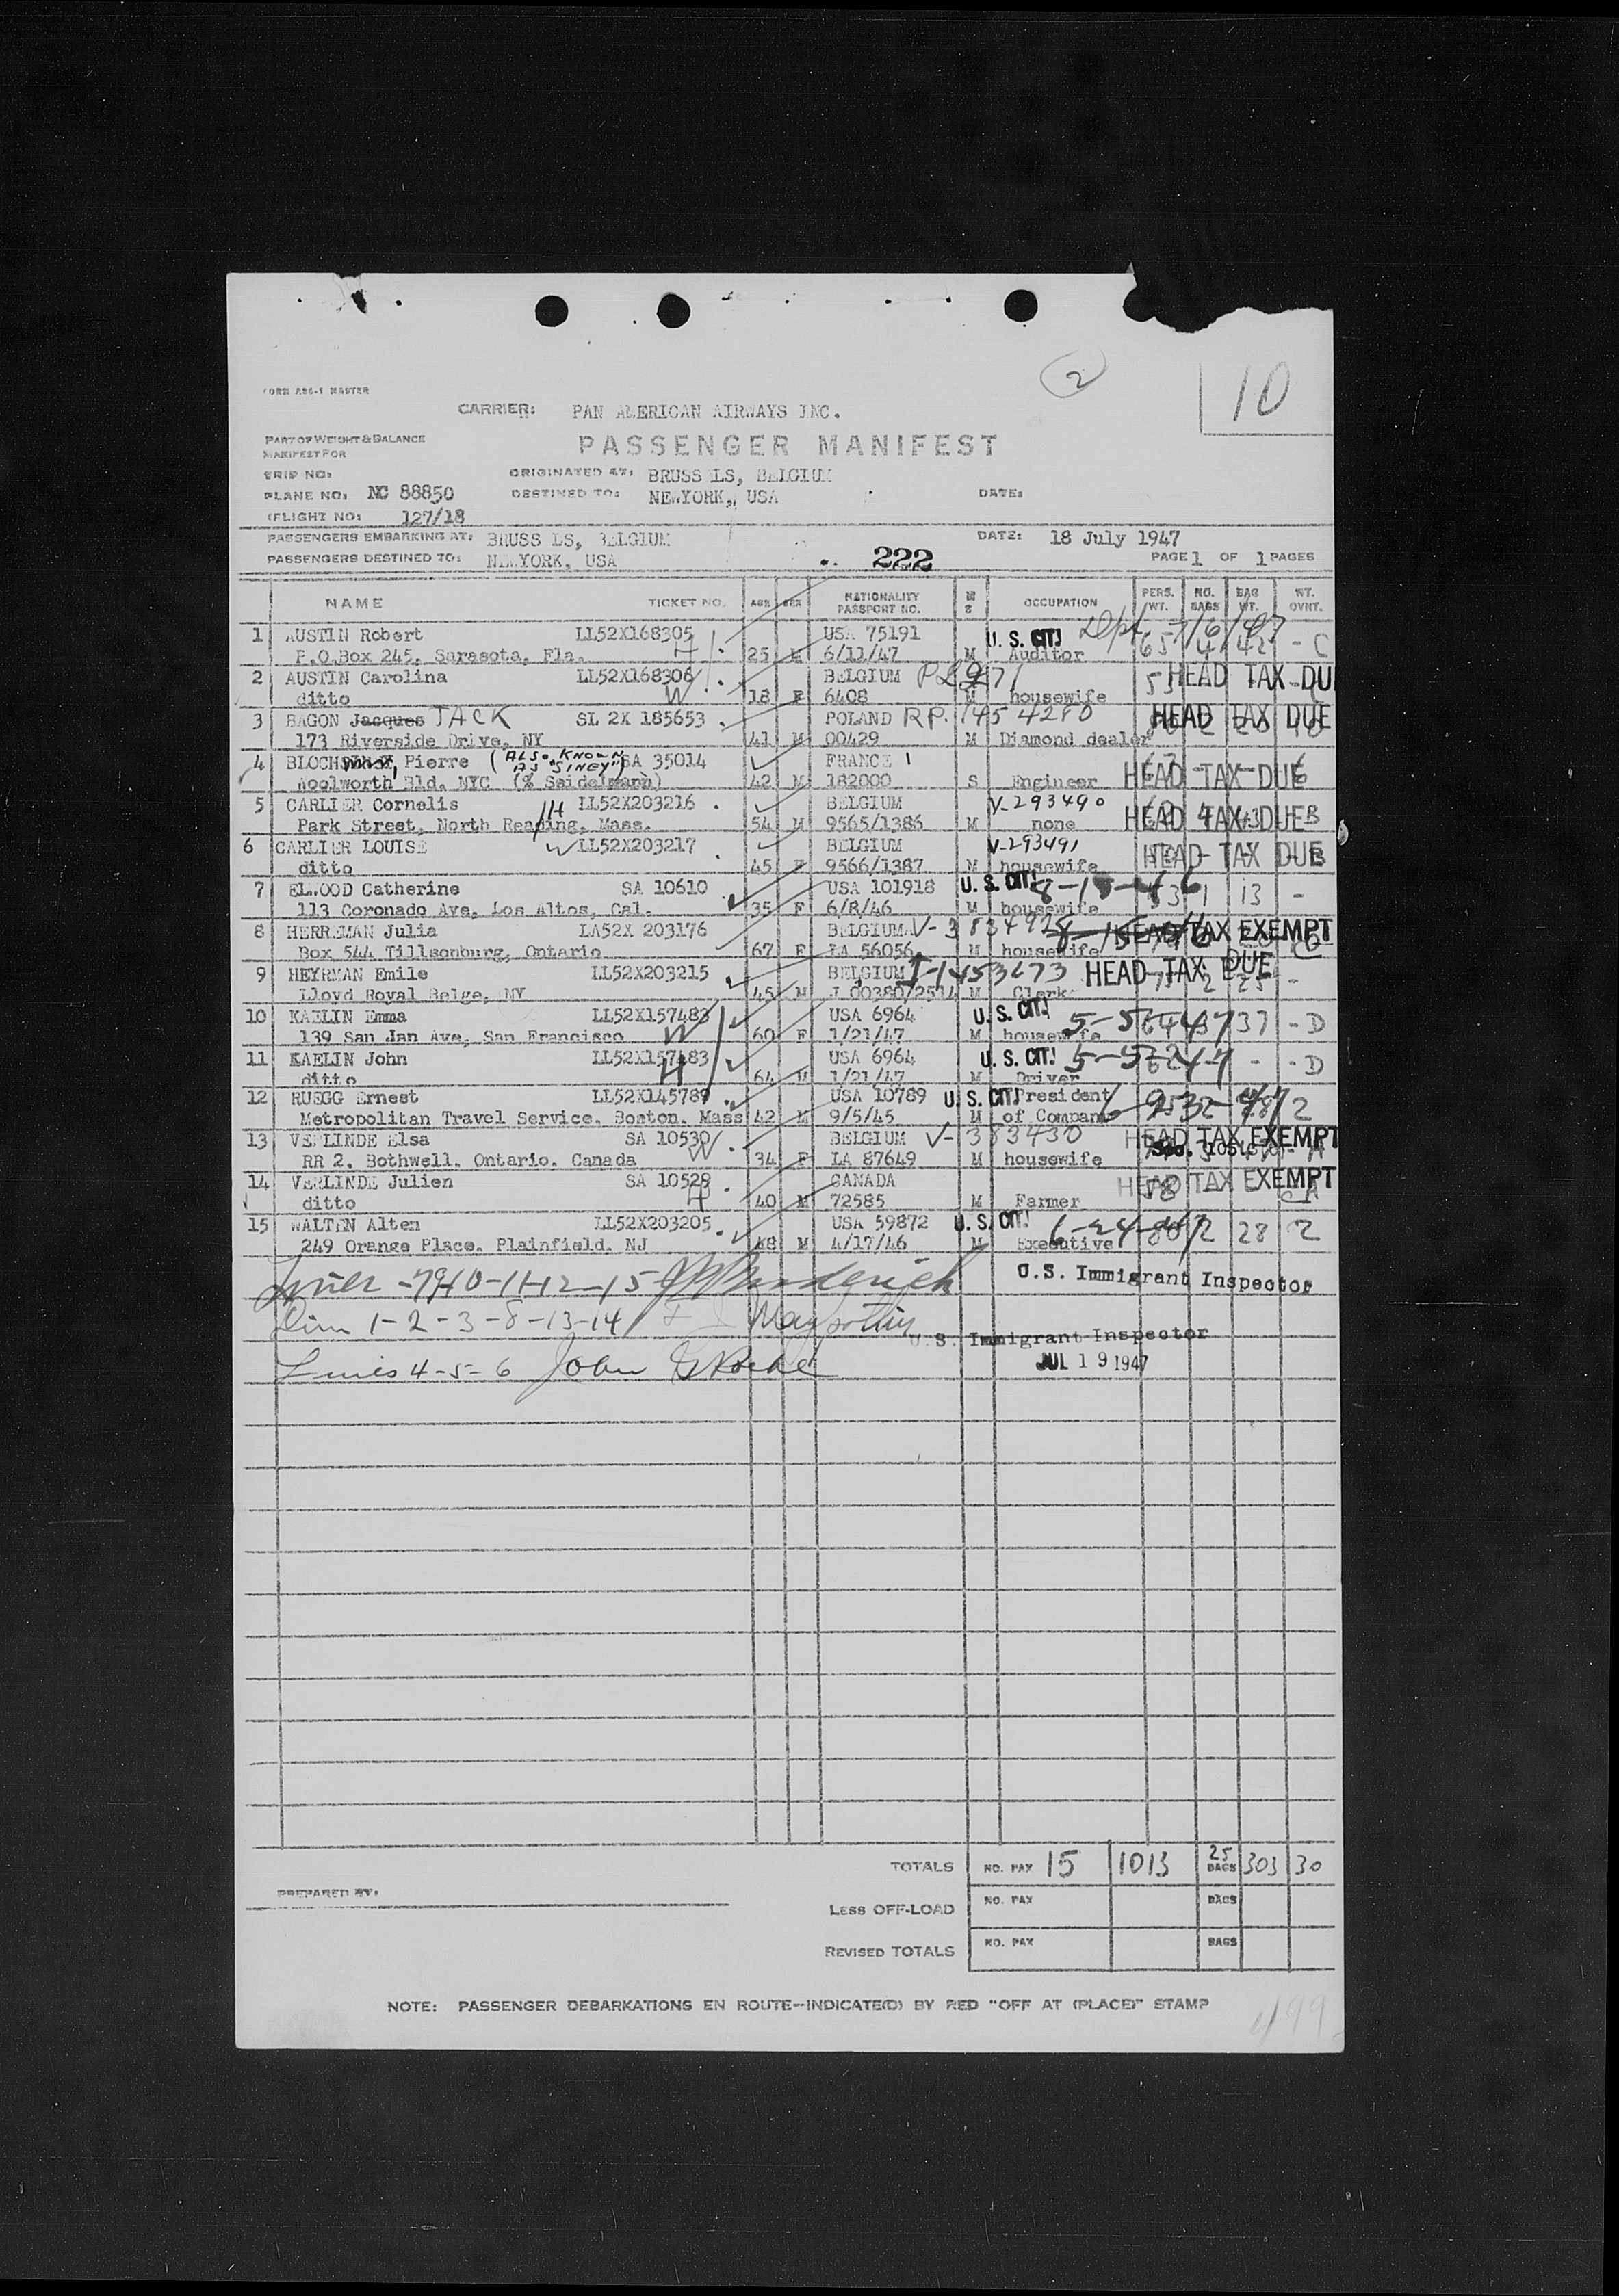 2
10
FORM ABC-1 MASTER
CARRIER: PAN AMERICAN AIRWAYS INC.
PART OF WEIGHT & BALANCE
MANIFEST FOR
PASSENGER MANIFEST
TRIP NO:
ORIGINATED AT: BRUSS LS, BELGIUM
PLANE NO: NC 88850 DESTINED TO: NEWYORK,, USA DATE:
FLIGHT NO: 127/18
PASSENGERS EMBARKING AT: BRUSS LS, BELGIUM DATE: 18 July 1947
PASSENGERS DESTINED TO: NEWYORK, USA 222 PAGE 1 OF 1 PAGES
NAME TICKET NO. AGE SEX NATIONALITY PASSPORT NO. M S OCCUPATION PERS. WT. NO. BAGS BAG WT. WT. OVNT.
1 AUSTIN Robert LL52X168305 USA 75191 U. S. CIT. Dpt 7/6/47
P.O.Box 245, Sarasota, Fla. H 25 M 6/11/47 M Auditor 65 4 42 - C
2 AUSTIN Carolina LL52X168306 BELGIUM HEAD TAX DU
ditto W 18 F 6408 M housewife 53
3 BAGON Jacques JACK SL 2X 185653 POLAND RP. 1454280 HEAD TAX DUE
173 Riverside Drive, NY 41 M 00429 M Diamond dealer
4 BLOCH Pierre (ALSO KNOWN AS "SINEY") SA 35014 FRANCE HEAD TAX DUE
Woolworth Bld. NYC (% Seidelmann) 42 M 182000 S Engineer
5 CARLIER Cornelis H LL52X203216 BELGIUM V-293490 HEAD TAX DUE
Park Street, North Reading, Mass. 54 M 9565/1386 M none
6 CARLIER LOUISE W LL52X203217 BELGIUM V-293491 HEAD TAX DUE
ditto 45 F 9566/1387 M housewife
7 ELWOOD Catherine SA 10610 USA 101918 U. S. CIT. 1 13 -
113 Coronado Ave, Los Altos, Cal. 35 F 6/8/46 M housewife
8 HERREMAN Julia LA52X 203176 BELGIUM HEAD TAX EXEMPT
Box 544 Tillsonburg, Ontario 67 F LA 56056 M housewife
9 HEYRMAN Emile LL52X203215 BELGIUM I-1453673 HEAD TAX DUE
Lloyd Royal Belge, NY 45 M J 00380/2514 M Clerk
10 KAELIN Emma LL52X157483 USA 6964 U. S. CIT. 37 - D
139 San Jan Ave, San Francisco W 60 F 1/21/47 M housewife
11 KAELIN John LL52X157483 USA 6964 U. S. CIT. - - D
ditto H 64 M 1/21/47 M Driver
12 RUEGG Ernest LL52X145789 USA 10789 U. S. CIT. President
Metropolitan Travel Service, Boston, Mass 42 M 9/5/45 M of Company
13 VERLINDE Elsa SA 10530 BELGIUM V-383430 HEAD TAX EXEMPT
RR 2. Bothwell, Ontario, Canada W 34 F LA 87649 M housewife
14 VERLINDE Julien SA 10529 CANADA HEAD TAX EXEMPT
ditto H 40 M 72585 M Farmer
15 WALTEN Alten LL52X203205 USA 59872 U. S. CIT. 28 2
249 Orange Place, Plainfield, NJ 48 M 4/17/46 M Executive
U.S. Immigrant Inspector
1-2-3-8-13-14
U.S. Immigrant Inspector
Lines 4-5-6 John
JUL 19 1947
TOTALS NO. PAX 15 1013 25 BAGS 303 30
PREPARED BY:
LESS OFF-LOAD NO. PAX BAGS
REVISED TOTALS NO. PAX BAGS
NOTE: PASSENGER DEBARKATIONS EN ROUTE—INDICATE(D) BY RED "OFF AT (PLACE)" STAMP